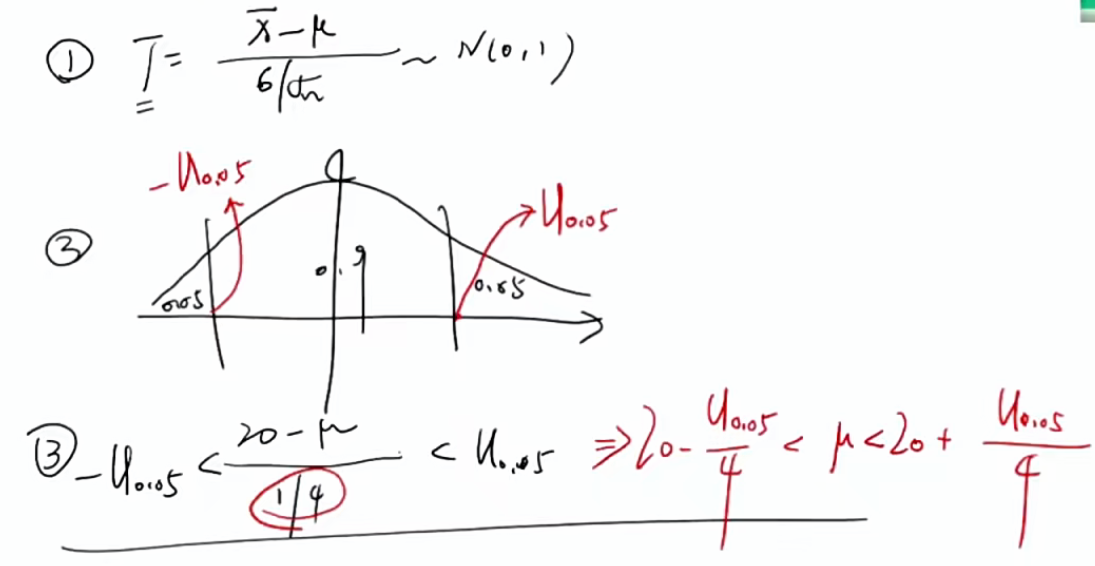 ① T = (x̄ − μ) / (σ/√n) ~ N(0,1)
−U0.05
U0.05
②
0.9
0.05
0.05
③ −U0.05 < (20 − μ) / (1/4) < U0.05 ⇒ 20 − U0.05/4 < μ < 20 + U0.05/4